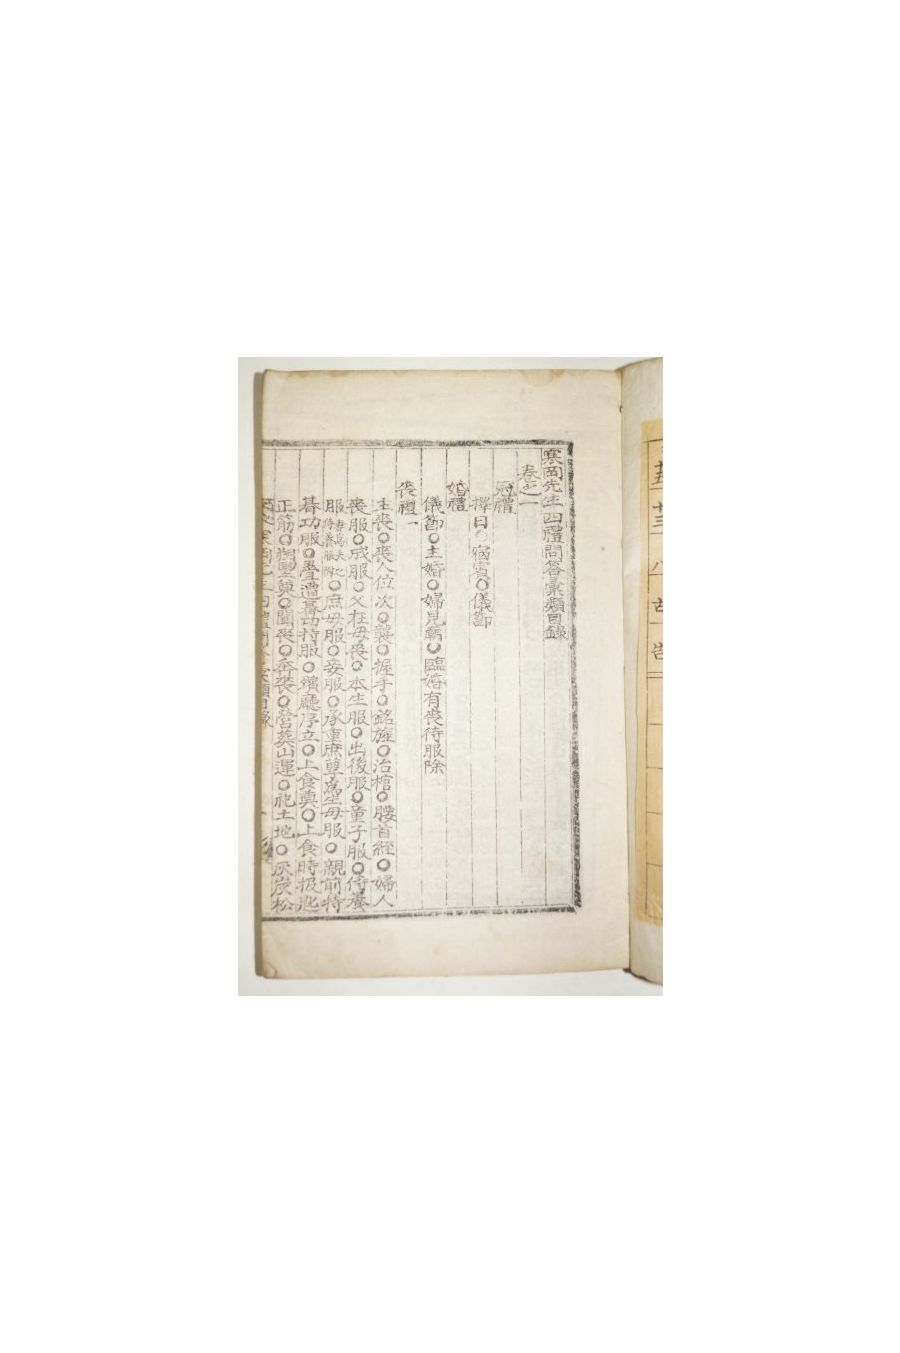 寒岡先生四禮問答彙類目錄
卷之一
冠禮
擇日○宿賓○儀節
婚禮
儀節○主婚○婦見廟○臨婚有喪待服除
喪禮一
主喪○喪人位次○襲○握手○銘旌○治棺○腰首絰○婦人
喪服○成服○父在母喪○本生服○出後服○童子服○侍養
服○庶母服○妾服○承重庶孼為生母服○親前持
朞功服○疊遭朞功持服○殯廳序立○上食奠○上食時扱匙
正筯○朔望奠○聞喪○奔喪○營葬山運○祀土地○灰炭松